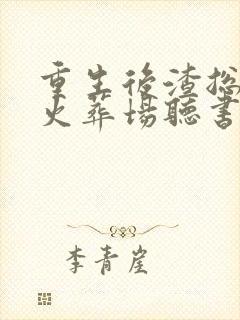 重生後渣總
火葬場聽書
李青崖